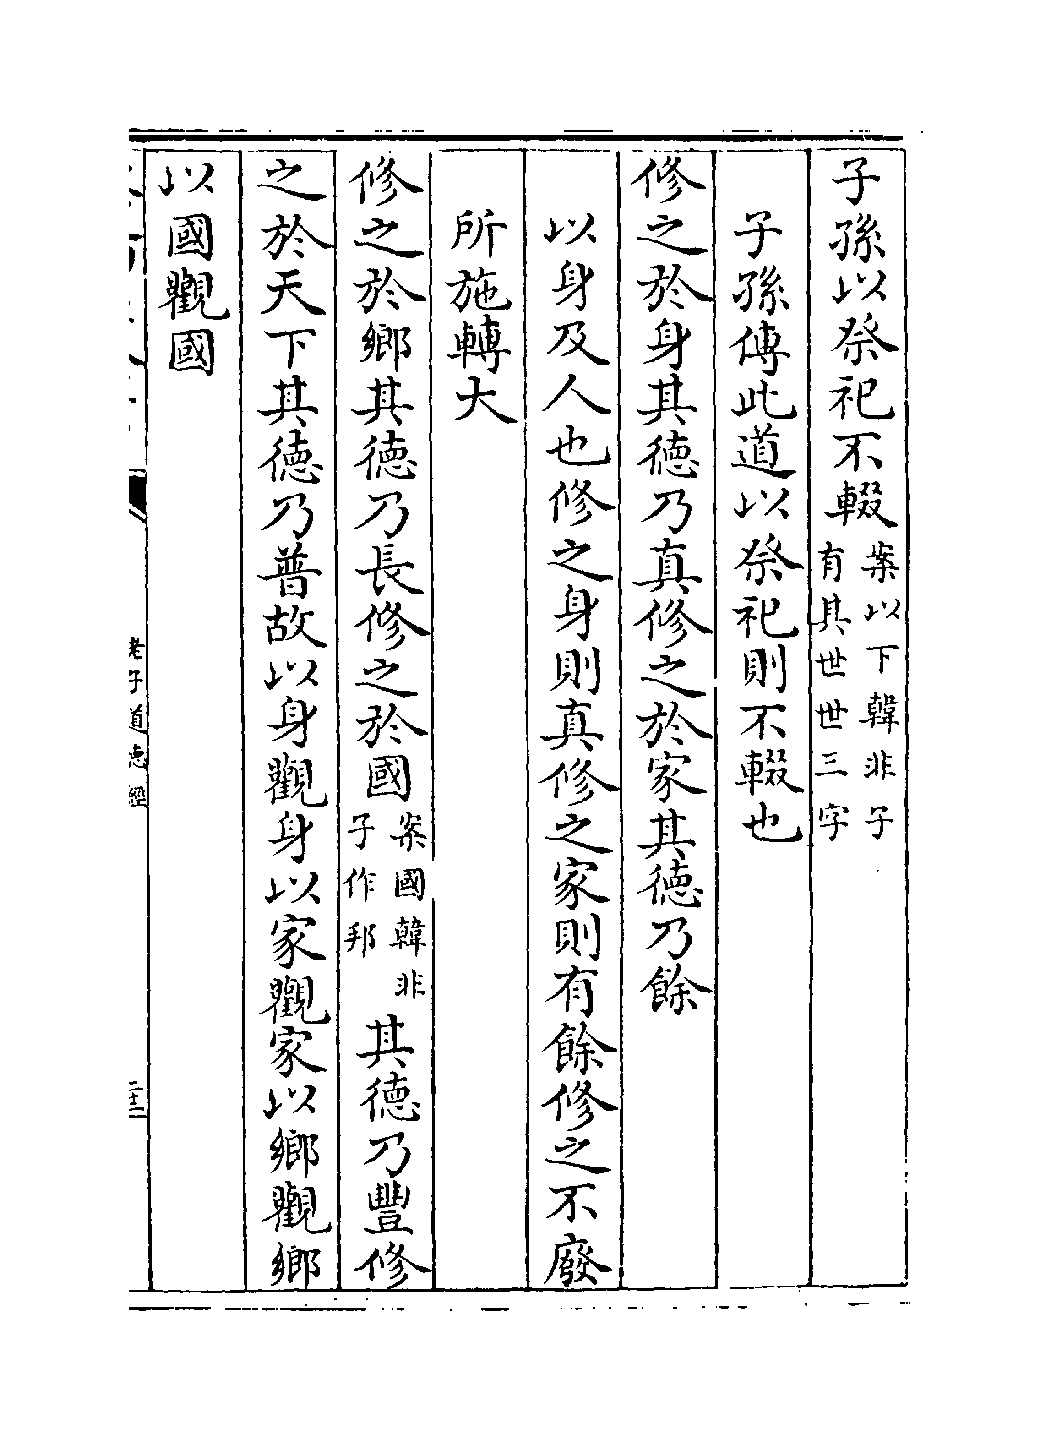 子孫以祭祀不輟案以下韓非子有其世世三字
子孫傳此道以祭祀則不輟也
修之於身其德乃真修之於家其德乃餘
以身及人也修之身則真修之家則有餘修之不廢
所施轉大
修之於鄉其德乃長修之於國案國韓非子作邦其德乃豐修
之於天下其德乃普故以身觀身以家觀家以鄉觀鄉
以國觀國
老子道德經